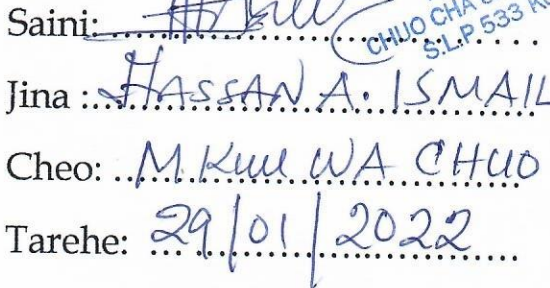 Saini:
CHUO CHA
S.L.P 533
Jina : HASSAN A. ISMAIL
Cheo: M.Kuu WA CHUO
Tarehe: 29/01/2022